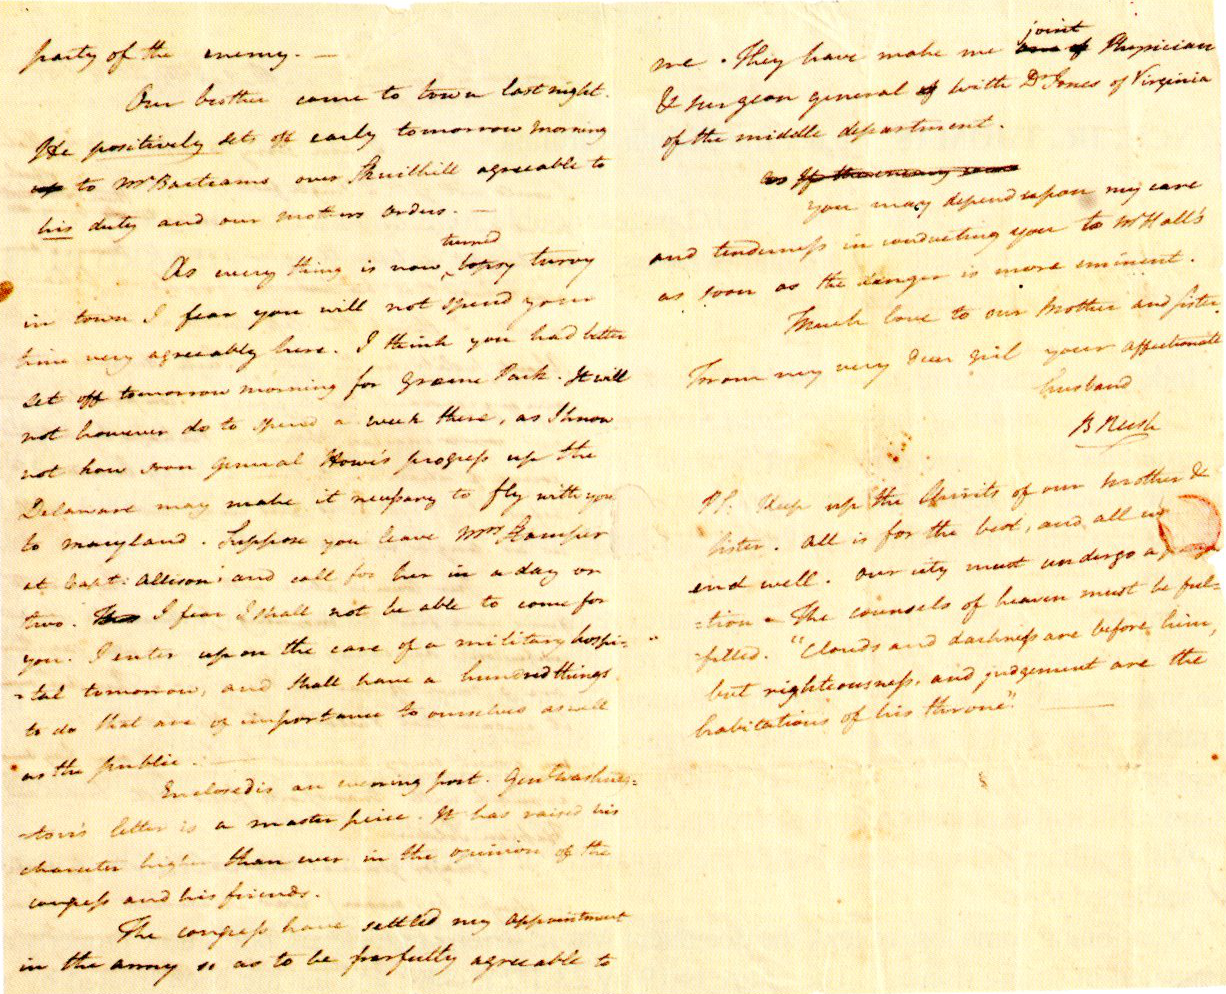 party of the enemy. —
Our brother came to town last night.
He positively sets off early tomorrow morning
up to Mr Bartrams over Skuilkill agreeable to
his duty and our mothers orders. —
As every thing is now turned topsy turvy
in town I fear you will not spend your
time very agreeably here. I think you had better
set off tomorrow morning for Graeme Park. It will
not however do to spend a week there, as I know
not how soon General Howe's progress up the
Delaware may make it necessary to fly with you
to Maryland. Suppose you leave Mrs Stamper
at Capt: Allison's and call for her in a day or
two. I fear I shall not be able to come for
you. I enter upon the care of a military hospi=
=tal tomorrow, and shall have a hundred things
to do that are of importance to ourselves as well
as the public. —
Enclosed is an evening post. Genl Washing=
=ton's letter is a master peice. It has raised his
character higher than ever in the opinion of the
congress and his friends.
The congress have settled my appointment
in the army so as to be perfectly agreeable to
me. They have make me joint one of Physician
& surgeon general of with Dr Jones of Virginia
of the middle department.
as If the enemy
You may depend upon my care
and tenderness in conducting you to Mr Hall's
as soon as the danger is more eminent.
Much love to our Mother and sister.
From my very dear girl your affectionate
husband
B Rush
PS. Keep up the Spirits of our mother &
sister. All is for the best, and all
end well. Our city must undergo a
=tion - The counsels of heaven must be ful=
=filled. "Clouds and darkness are before him,
but righteousness, and judgement are the
habitations of his throne" —